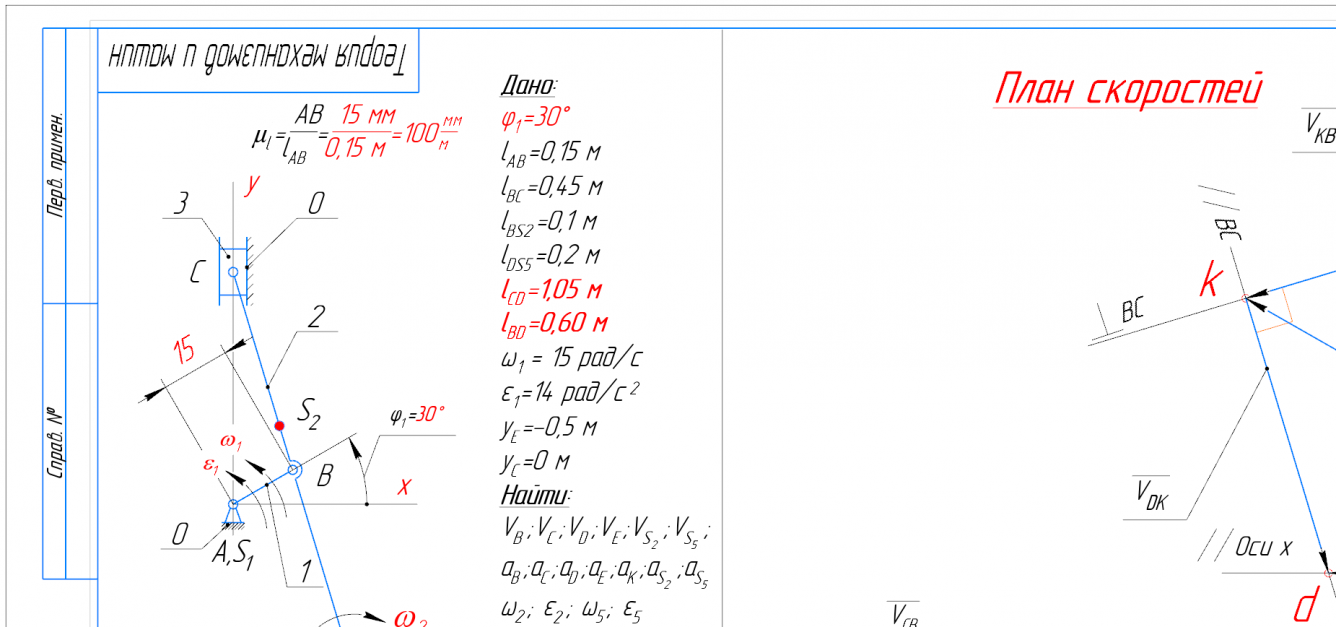 Теория механизмов и машин
Перв. примен.
Справ. №
μl = AB / lAB = 15 мм / 0,15 м = 100 мм/м
y
3
0
C
2
15
S2
φ1=30°
ω1
ε1
B
x
0
A,S1
1
ω2
Дано:
φ1=30°
lAB=0,15 м
lBC=0,45 м
lBS2=0,1 м
lDS5=0,2 м
lCD=1,05 м
lBD=0,60 м
ω1 = 15 рад/с
ε1=14 рад/с²
yE=-0,5 м
yC=0 м
Найти:
VB; VC; VD; VE; VS2; VS5;
aB; aC; aD; aE; aK; aS2; aS5
ω2; ε2; ω5; ε5
План скоростей
VKB
// BC
k
⊥ BC
VDK
// Оси x
d
VCB